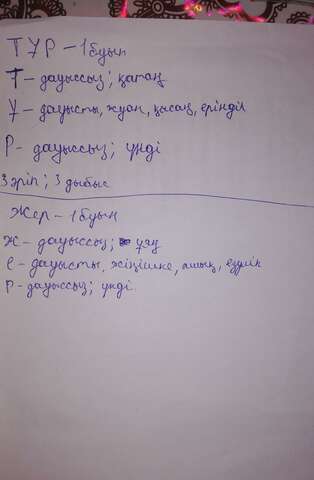 ТҰР - 1 буын
Т - дауыссыз; қатаң
Ұ - дауысты, жуан, қысаң, еріндік
Р - дауыссыз; үнді
3 әріп; 3 дыбыс
Жер - 1 буын
Ж - дауыссыз; ұяң
е - дауысты, жіңішке, ашық, езулік
Р - дауыссыз; үнді.